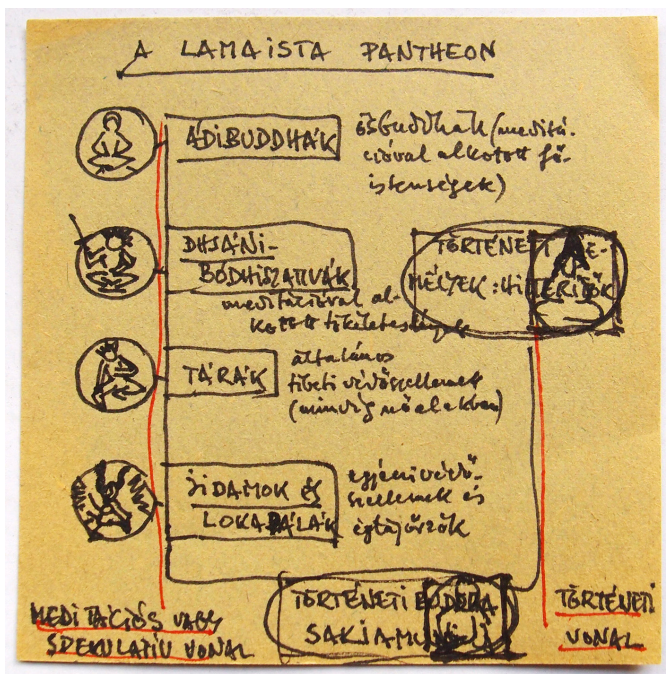 A LAMAISTA PANTHEON
ÁDIBUDDHÁK
ősbuddhák (meditá-
cióval alkotott fő-
istenségek)
DHJÁNI-
BÓDHISZATTVÁK
meditációval al-
kotott tökéletes lények
TÖRTÉNETI SZE-
MÉLYEK: HITTÉRÍTŐK
TÁRÁK
általános
tibeti védőszellemek
(mindig nőalakban)
JIDAMOK ÉS
LOKAPÁLÁK
egyéni védő-
szellemek és
égtájőrzők
TÖRTÉNETI BUDDHA
SAKJAMUNI
MEDITÁCIÓS VAGY
SPEKULATÍV VONAL
TÖRTÉNETI
VONAL